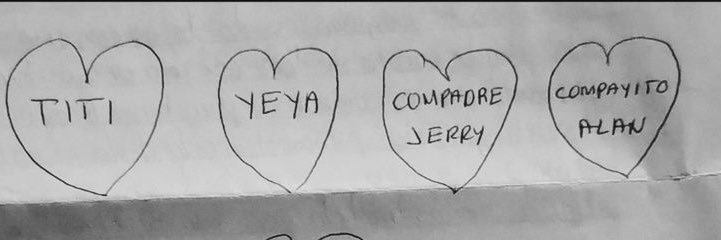 TITI
YEYA
COMPADRE
JERRY
COMPAYITO
ALAN